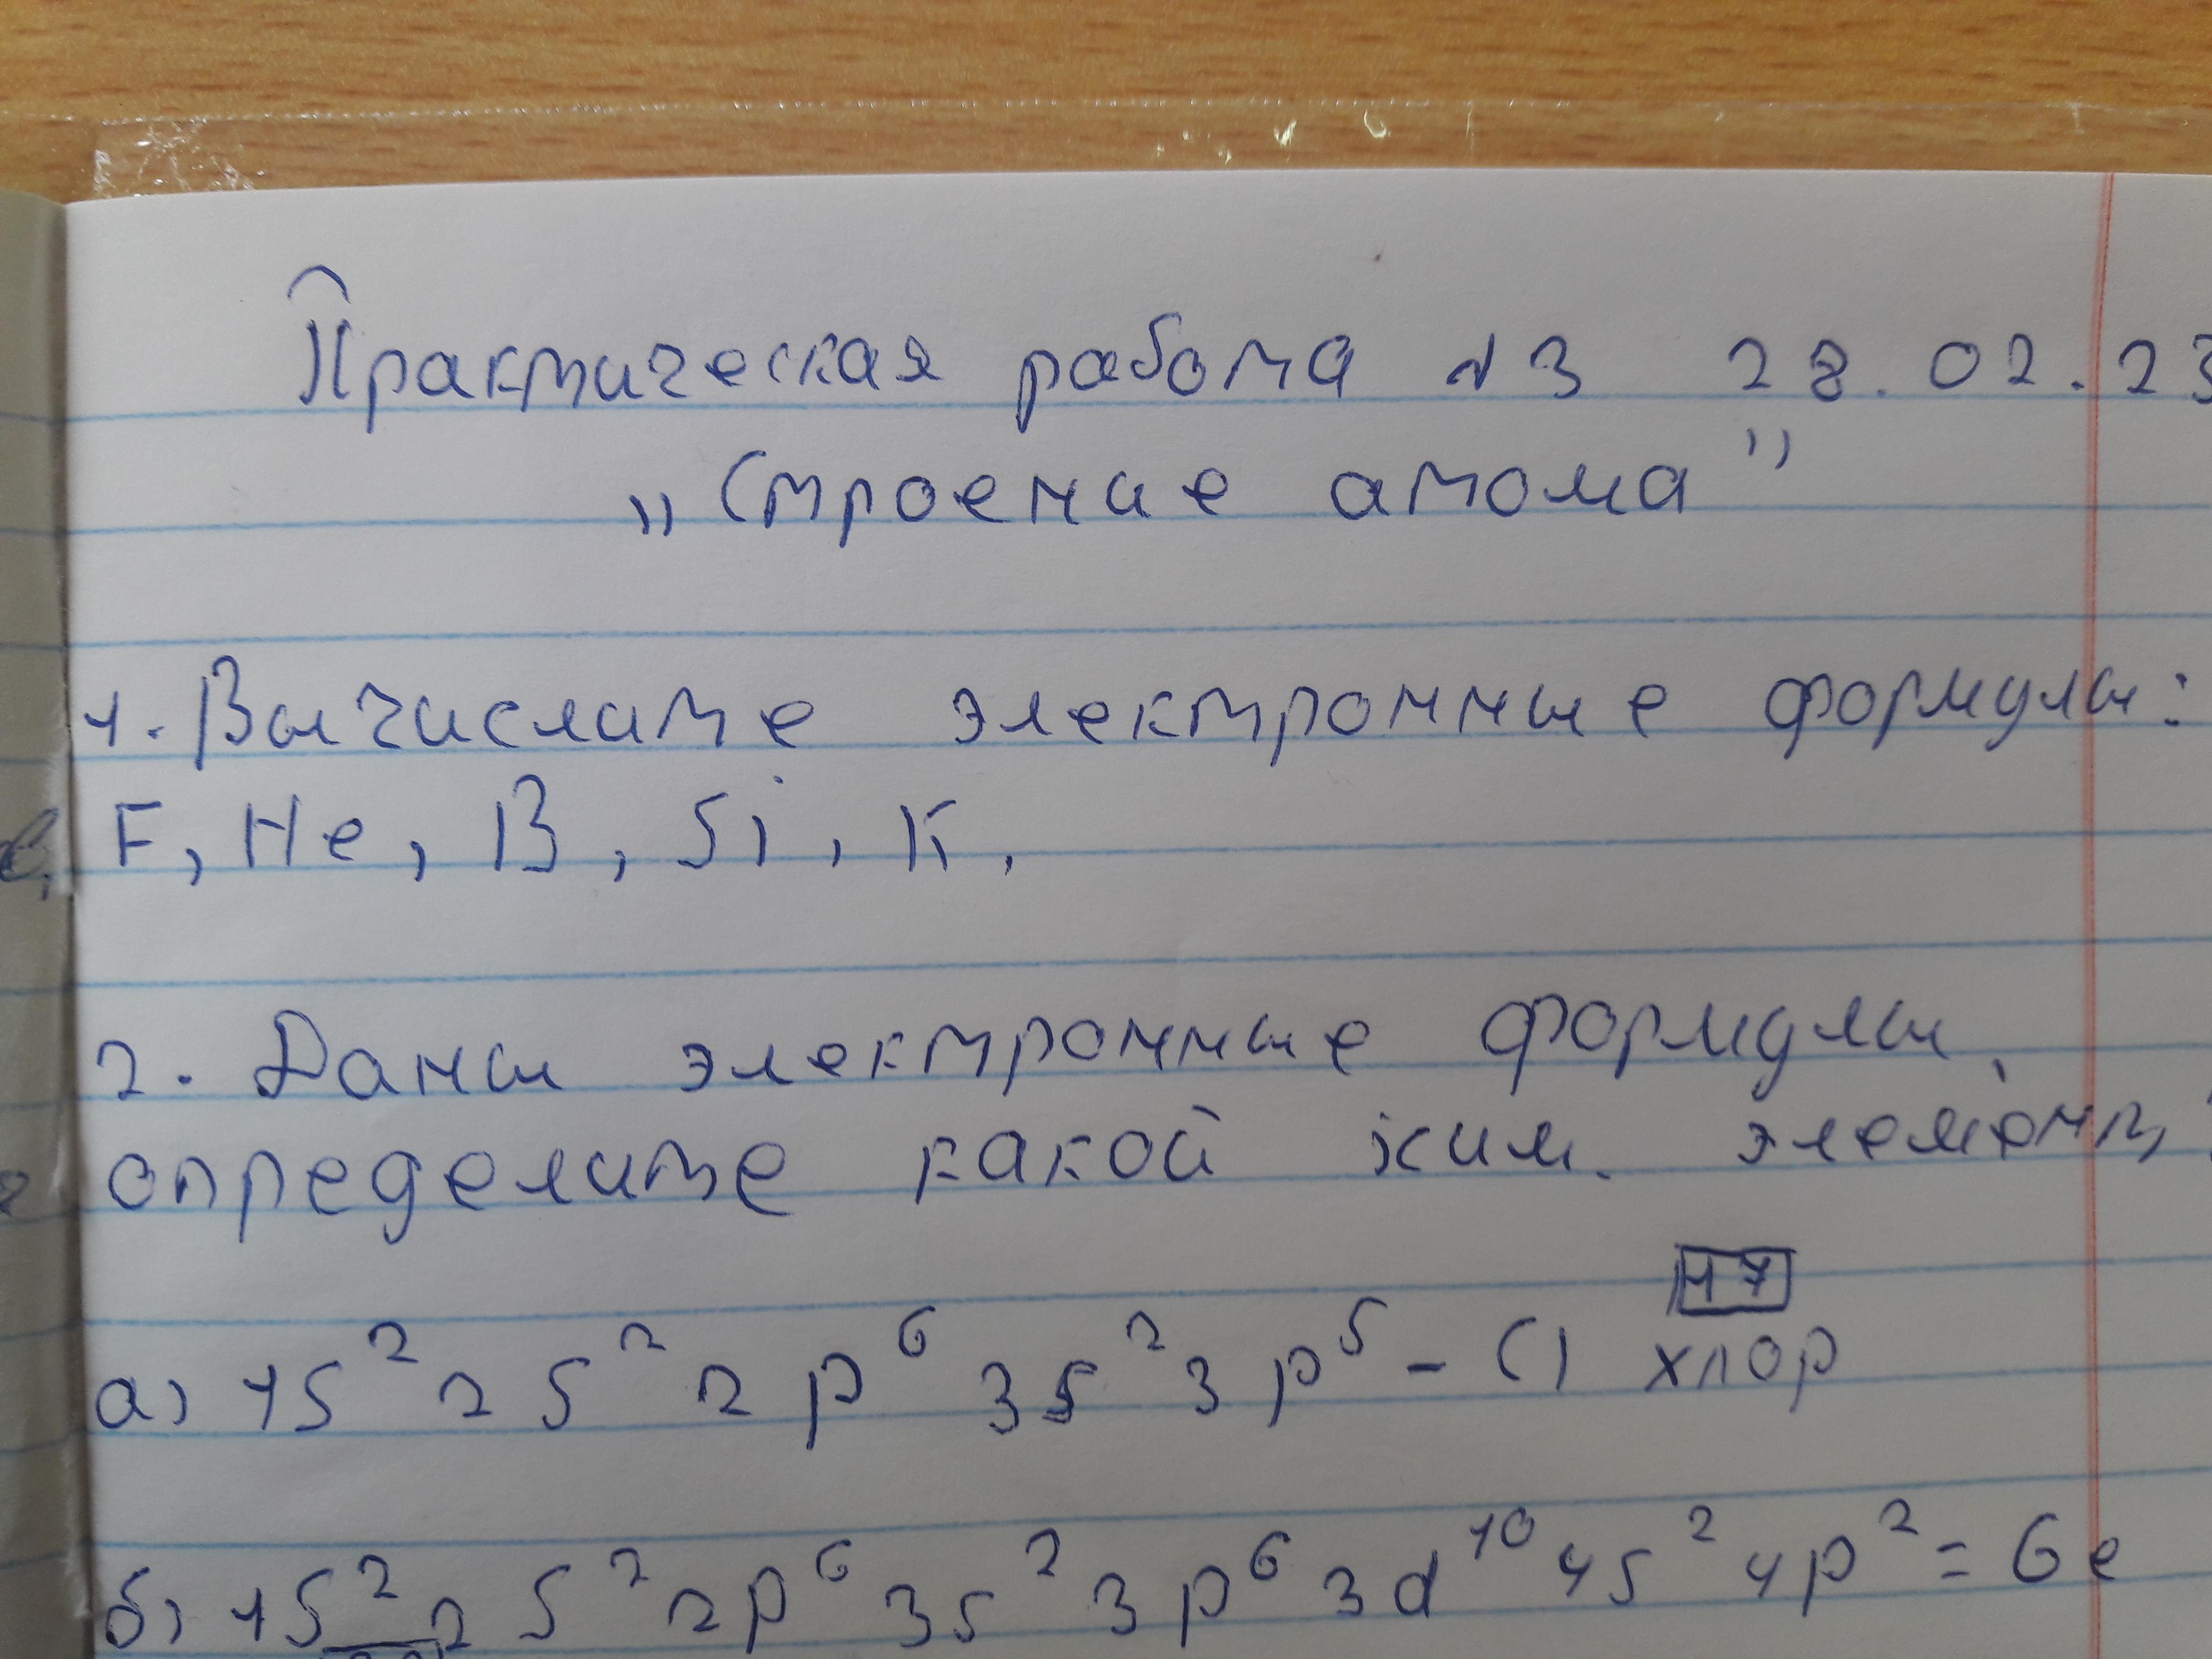 Практическая работа N3 28.02.23
„Строение атома”
1. Вычислите электронные формулы:
F, He, B, Si, K.
2. Даны электронные формулы,
определите какой хим. элемент
17
а) 1s² 2s² 2p⁶ 3s² 3p⁵ – Cl хлор
б) 1s² 2s² 2p⁶ 3s² 3p⁶ 3d¹⁰ 4s² 4p² = Ge